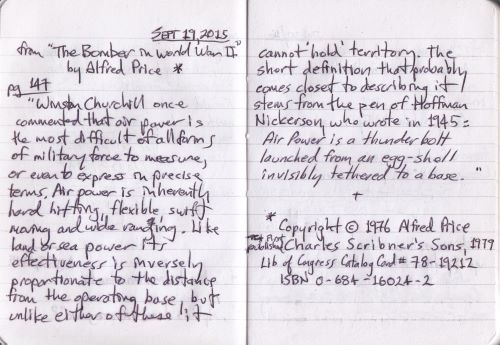 SEPT 19, 2015
from "The Bomber in World War II"
by Alfred Price *
pg 147
"Winston Churchill once
commented that air power is
the most difficult of all forms
of military force to measure,
or even to express in precise
terms. Air power is inherently
hard hitting, flexible, swift
moving and wide ranging. Like
land or sea power its
effectiveness is inversely
proportionate to the distance
from the operating base, but
unlike either of these it
cannot 'hold' territory. The
short definition that probably
comes closest to describing it
stems from the pen of Hoffman
Nickerson, who wrote in 1945:
Air Power is a thunderbolt
launched from an egg-shell
invisibly tethered to a base."
+
*
Copyright © 1976 Alfred Price
First published Charles Scribner's Sons, 1979
Lib of Congress Catalog Card # 78-19212
ISBN 0-684-16024-2